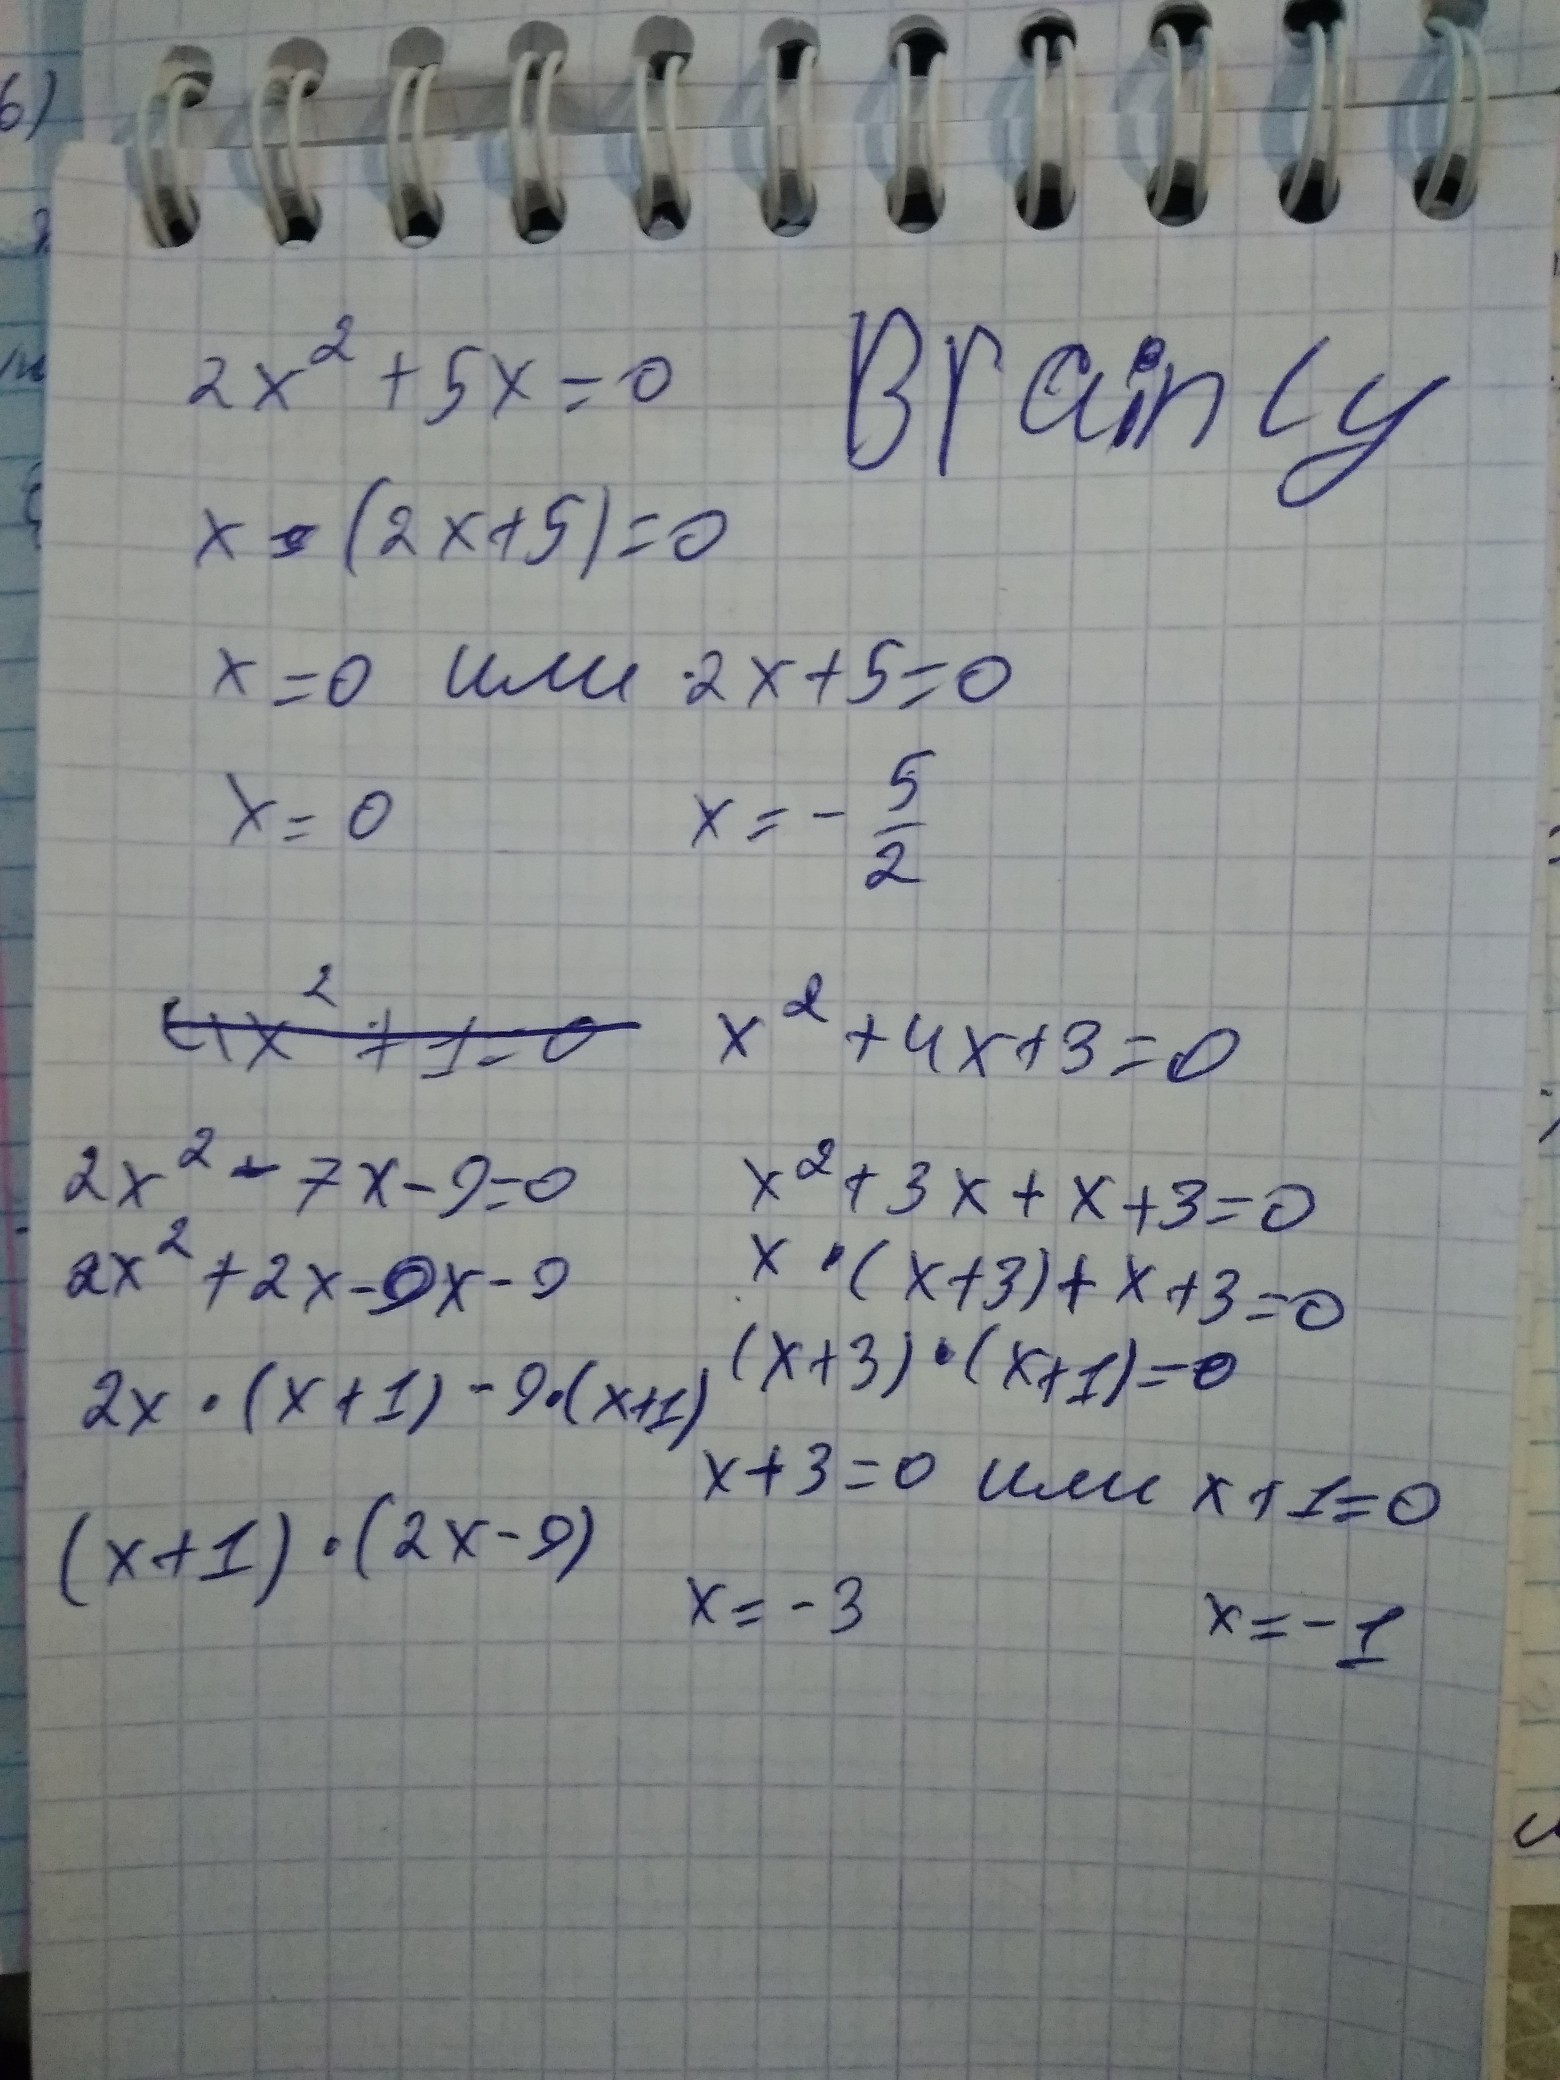 6)
2x² + 5x = 0
Brainly
x · (2x+5) = 0
x = 0 или 2x+5=0
x = 0 x = - 5/2
4x² + 1 = 0
x² + 4x + 3 = 0
2x² - 7x - 9 = 0
2x² + 2x - 9x - 9
2x · (x+1) - 9 · (x+1)
(x+1) · (2x-9)
x² + 3x + x + 3 = 0
x · (x+3) + x + 3 = 0
(x+3) · (x+1) = 0
x+3=0 или x+1=0
x = -3 x = -1